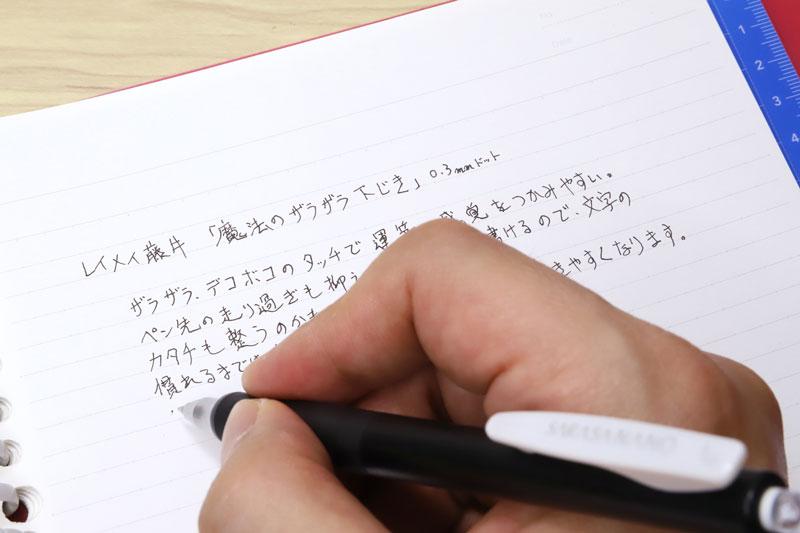 No.
Date
1
2
3
4
レイメイ藤井「魔法のザラザラ下じき」0.3mmドット
ザラザラ、デコボコのタッチで運筆 感覚をつかみやすい。
ペン先の走り過ぎも抑え 書けるので、文字の
カタチも整うのかも きやすくなります。
慣れるまでは
SARASA NANO